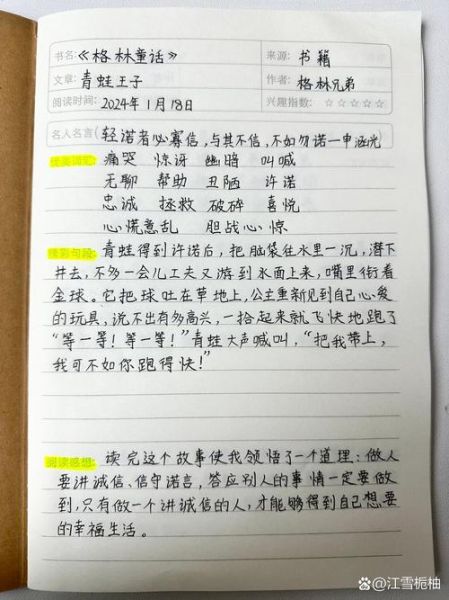 书名:《格林童话》 来源: 书籍
文章: 青蛙王子 作者: 格林兄弟
阅读时间: 2024年1月18日 兴趣指数: ☆☆☆☆☆
名人名言(轻诺者必寡信,与其不信,不如勿诺—申涵光
优美词汇: 痛哭 惊讶 幽暗 叫喊
无聊 帮助 丑陋 许诺
忠诚 拯救 破碎 喜悦
心慌意乱 胆战心惊
精彩句段: 青蛙得到许诺后,把脑袋往水里一沉,潜下
井去,不多一会儿工夫又游到水面上来,嘴里衔着
金球。它把球吐在草地上,公主重新见到自己心爱
的玩具,说不出有多高兴,一拾起来就飞快地跑了
“等一等!等一等!”青蛙大声喊叫,“把我带上,
我可不如你跑得快!”
阅读感想: 读完这个故事使我领悟了一个道理:做人
要讲诚信、信守诺言,答应别人的事情一定要做
到,只有做一个讲诚信的人,才能够得到自己想要
的幸福生活。
@江雪栀柚